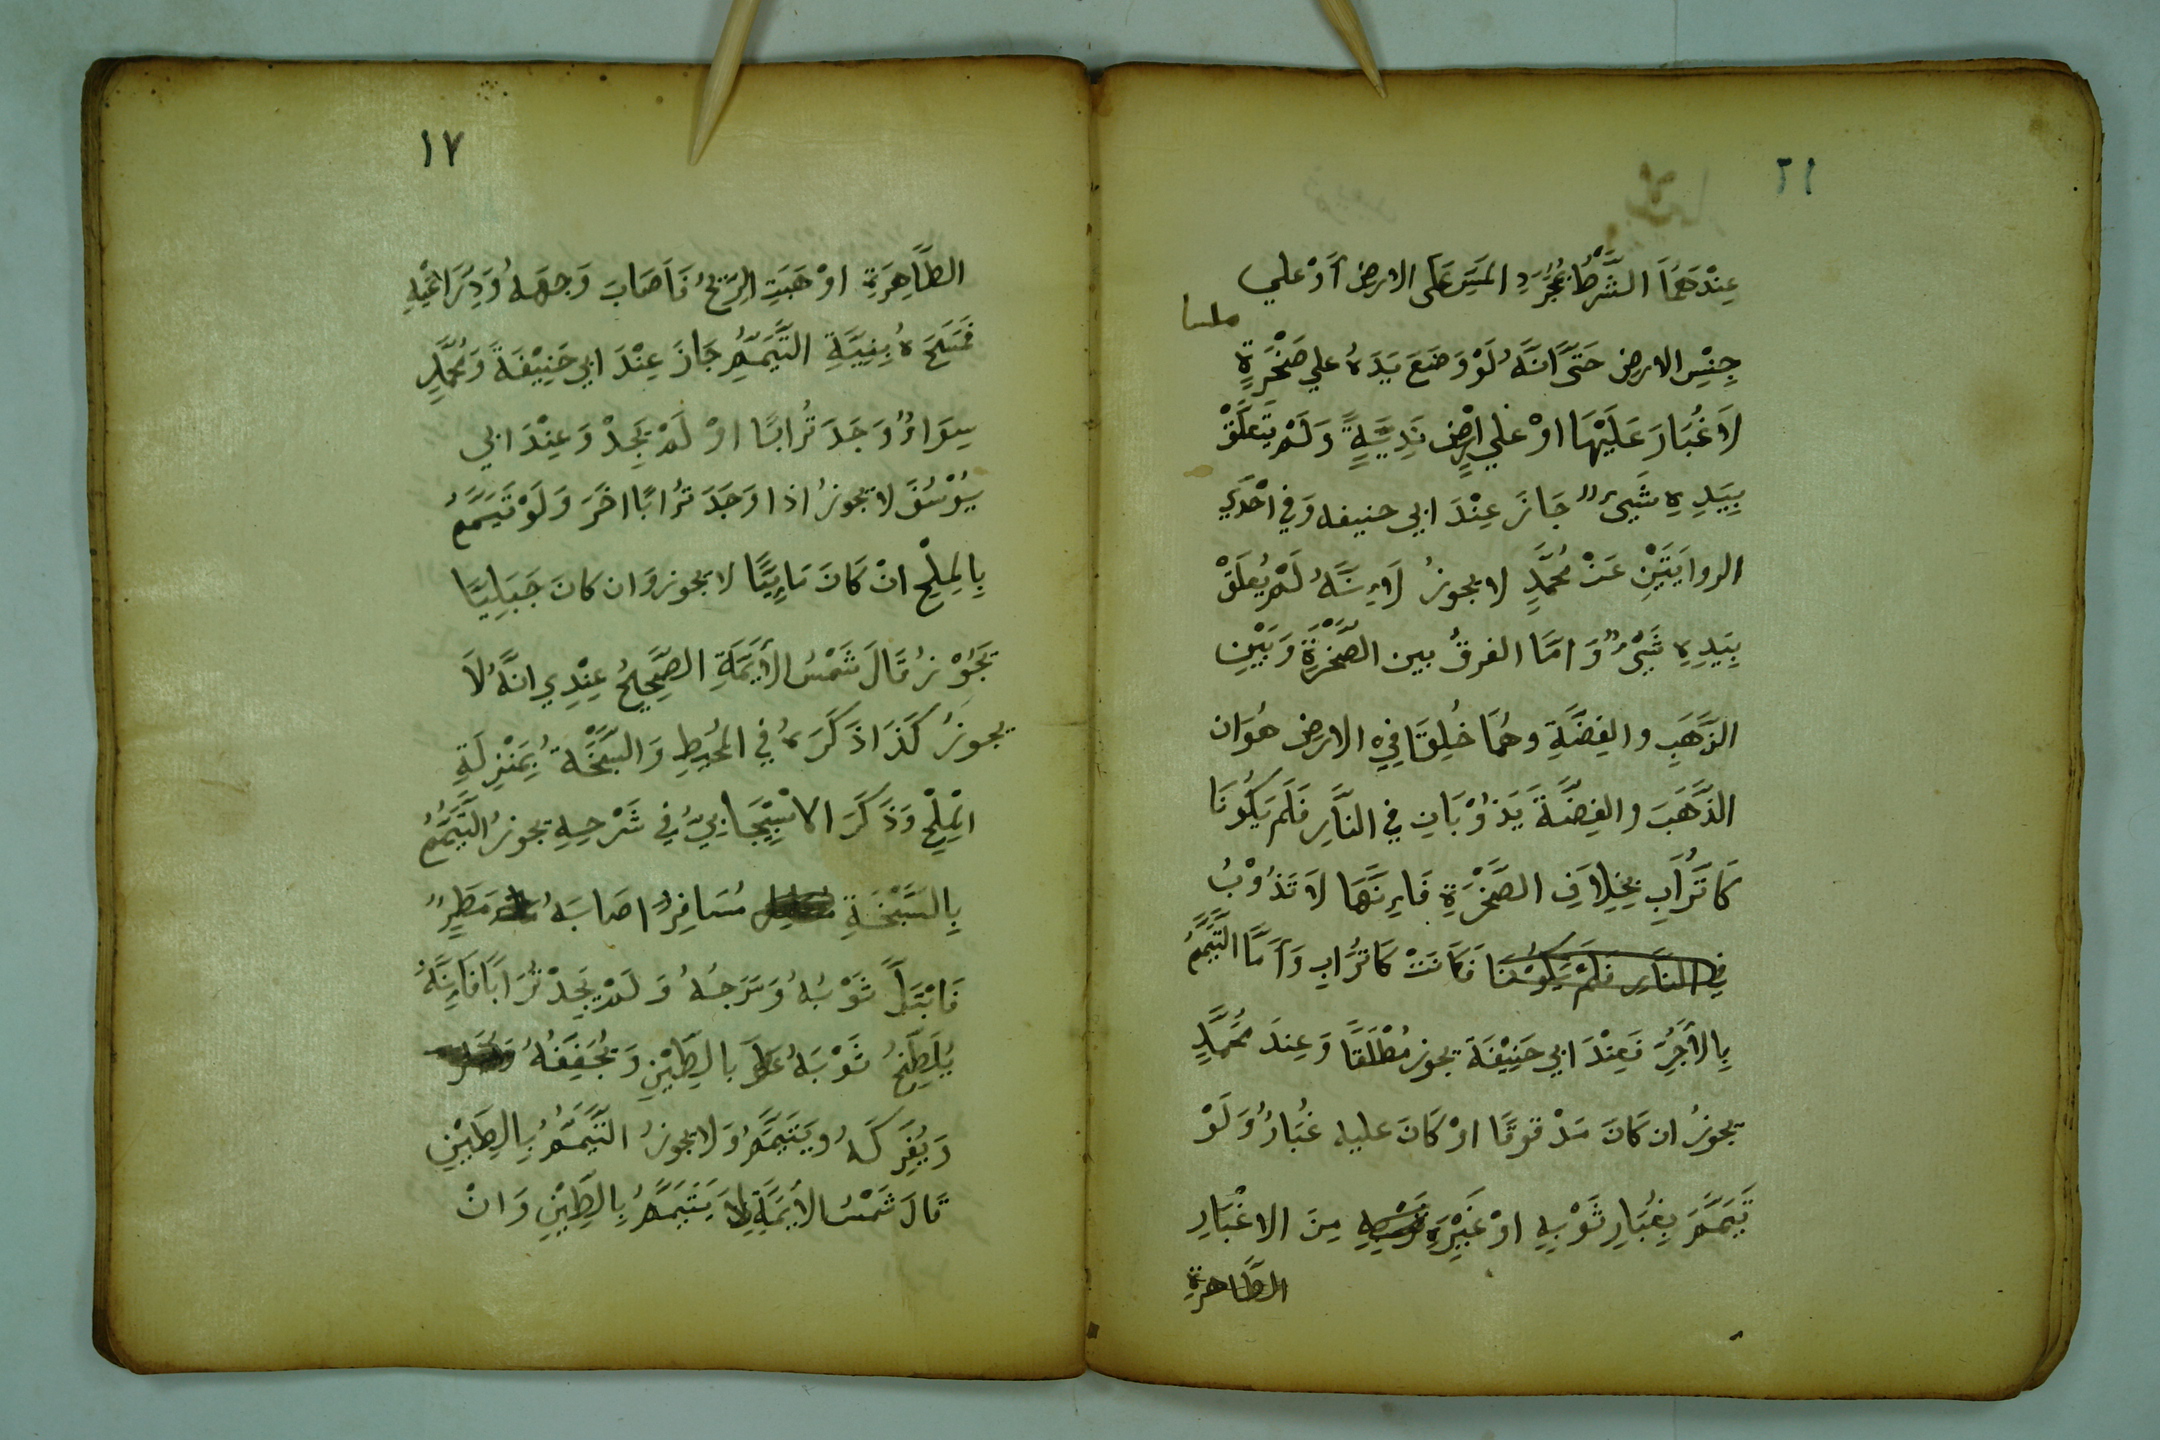 ٢١
عِنْدَهُمَا الشَّرْطُ بِمُجَرَّدِ المَسِّ عَلَى الارضِ اَوْ علي
جِنْسِ الارضِ حَتَّى اَنَّهُ لَوْ وَضَعَ يَدَهُ علي صَخْرَةٍ
لَا غُبَارَ عَلَيْهَا اوْ علي ارضٍ نَدِيَّةٍ وَلَمْ يَتَعَلَّقْ
بِيَدِهِ شَيْئٌ جَازَ عِنْدَ ابي حنيفه وَفي احْدَي
الروايَتَيْنِ عَنْ مُحَمَّدٍ لا يجوزُ لَاِنَّهُ لَمْ يُعَلَّقْ
بِيَدِهِ شَيْءٌ وَامَّا الفرقُ بين الصَّخْرَةِ وَبَيْنِ
الذَّهَبِ والفِضَّةِ وهُمَا خُلِقَا فِي الارضِ هُوَ ان
الذَّهَبَ والفِضَّةَ يَذُوْبَانِ فِي النَّارِ فَلَم يَكُونَا
كَا تُرَابِ بِخِلَافِ الصَّخْرَةِ فَاِنَّهَا لَا تَذُوْبُ
فِي النَّارِ فَلَمْ يَكُوْنَا فَكَانَتْ كَا تُرَابِ وَاَمَّا التَّيَمُّمُ
بِالْآجُرِّ فَعِنْدَ ابي حَنِيْفَةَ يجوز مُطْلَقًا وَعِندَ مُحَمَّدٍ
يجوزُ ان كَانَ مَدْقوقًا اوْ كَانَ عليه غُبَارٌ وَلَوْ
تَيَمَّمَ بِغُبَارِ ثَوْبِهِ اوْ غَيْرِهِ مِنَ الاغْبَارِ
الطَّاهرةِ
١٧
الطَّاهِرَةِ اوْ هَبَّتِ الرِّيْحُ فَاَصَابَ وَجهَهُ وَذِرَاعَيْهِ
فَمَسَحَهُ بِنِيَّةِ التَّيَمُّمِ جَازَ عِنْدَ ابي حَنِيْفَةَ وَمُحَمَّدٍ
سِوَاءٌ وَجَدَ تُرَابًا اوْ لَمْ يَجِدْ وَعِنْدَ ابي
يُوْسُفَ لا يجوزُ اذا وَجَدَ تُرَابًا اخَرَ وَلَوْ تَيَمَّمَ
بِالمِلْحِ انْ كَانَ مَايِيًّا لا يجوز وَان كانَ جَبَلِيًّا
يَجُوْزُ قَالَ شَمْسُ الْأَيِمَّةِ الصَّحِيحُ عِنْدِي انَّهُ لَا
يجوزُ كَذَا ذَكَرَهُ فِي المُحِيطِ وَالسَّبْخَةُ بِمَنْزِلَةِ
المِلْحِ وَذَكَرَ الاسْبِيْجَابِيُّ فِي شَرْحِهِ يجوزُ التَّيَمُّمُ
بِالسَّبْخَةِ مُسَافِرٌ اصَابَهُ مَطَرٌ
فَابْتَلَّ ثَوْبُهُ وَسَرَجُهُ وَلَمْ يَجِدْ تُرَابًا فَاِنَّهُ
يُلَطِّخُ ثَوْبَهُ بِالطِّيْنِ وَيُجَفِّفُهُ
وَيُفْرِكَهُ وَيَتَيَمَّمُ وَلا يجوزُ التَّيَمُّمُ بِالطِّيْنِ
قَالَ شَمْسُ الْأَيِمَّةِ لَا يَتَيَمَّمُ بِالطِّيْنِ وَانْ